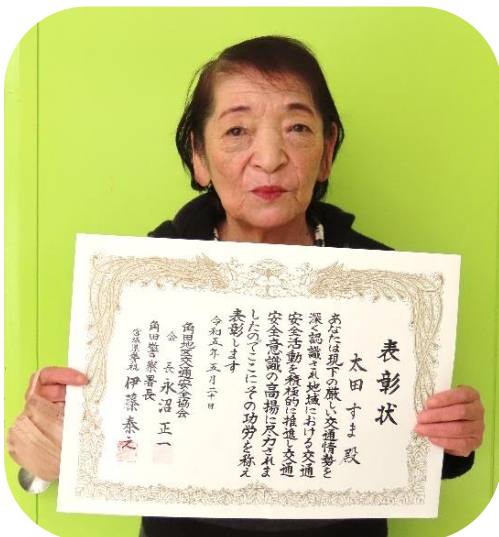 表彰状
太田すま殿
あなたは現下の厳しい交通情勢を
深く認識され地域における交通
安全活動を積極的に推進し交通
安全意識の高揚に尽力されま
したのでここにその功労を称え
表彰します
令和五年五月二十日
角田地区交通安全協会
会長永沼正一
角田警察署長
宮城県警視伊藤泰之